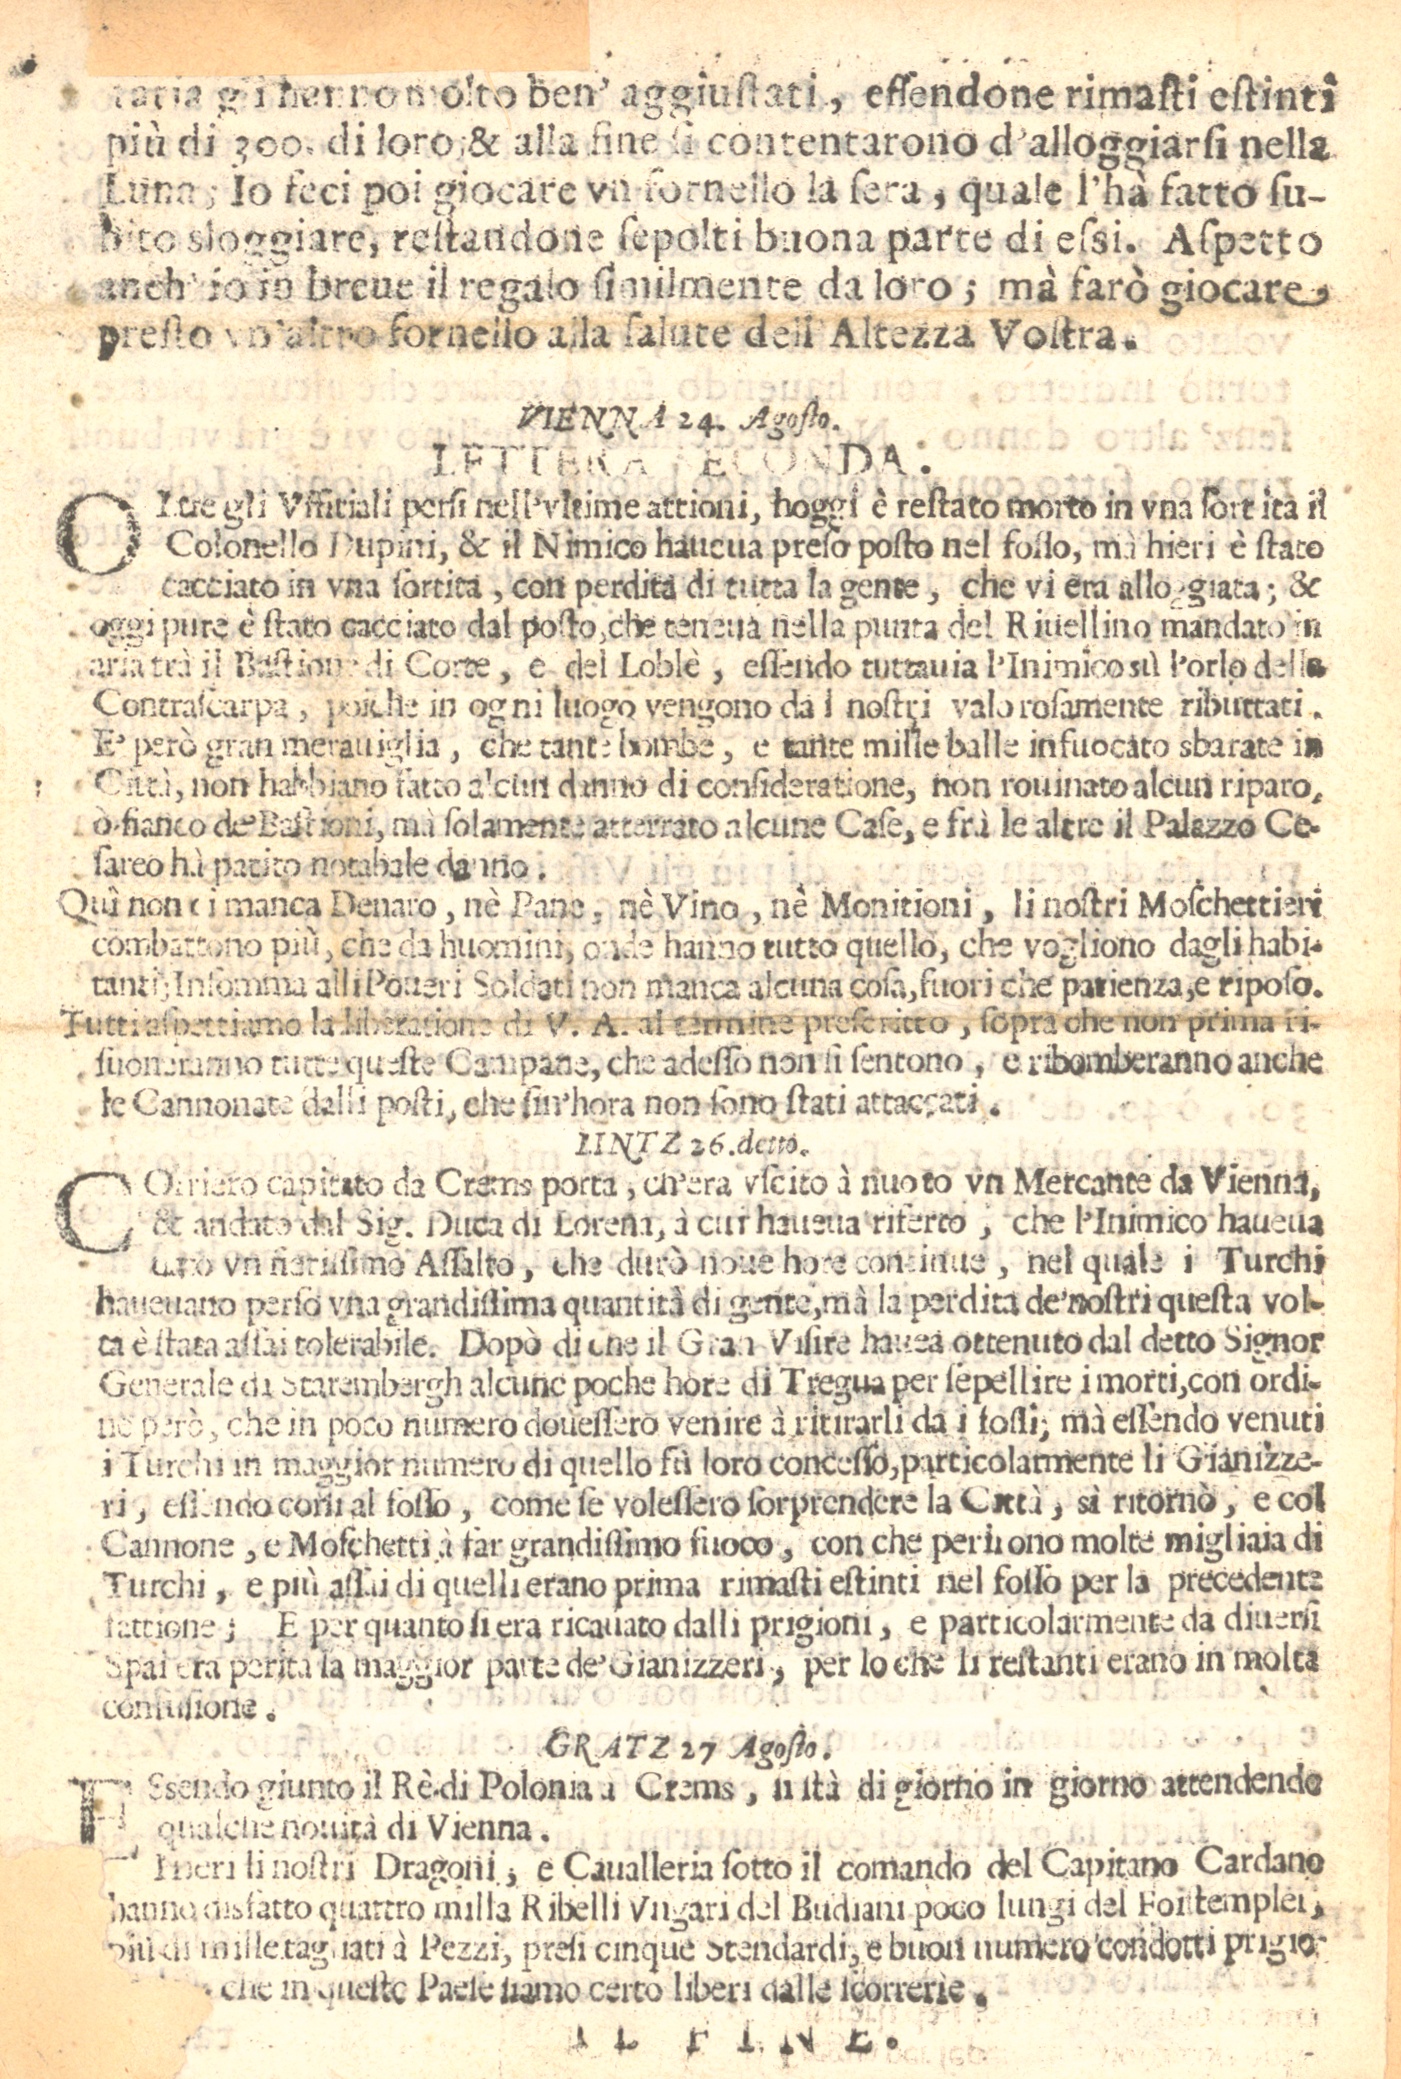 gli hanno molto ben' aggiustati, essendone rimasti estinti
più di 300. di loro; & alla fine si contentarono d'alloggiarsi nella
Luna; Io feci poi giocare vn fornello la sera, quale l'hà fatto su-
bito sloggiare, restandone sepolti buona parte di essi. Aspetto
anch' io in breue il regalo similmente da loro; mà farò giocare
presto vn'altro fornello alla salute dell'Altezza Vostra.
VIENNA 24. Agosto.
LETTERA SECONDA.
OLtre gli Vffitiali persi nell'vltime attioni, hoggi è restato morto in vna sortita il
Colonello Dupini, & il Nimico haueua preso posto nel fosso, mà hieri è stato
cacciato in vna sortita, con perdita di tutta la gente, che vi era alloggiata; &
oggi pure è stato cacciato dal posto, che teneua nella punta del Riuellino mandato in
aria trà il Bastione di Corte, e del Loblè, essendo tuttauia l'Inimico sù l'orlo della
Contrascarpa, poiche in ogni luogo vengono da i nostri valorosamente ributtati.
E' però gran merauiglia, che tante bombe, e tante mille balle infuocato sbarate in
Città, non habbiano fatto alcun danno di consideratione, non rouinato alcun riparo,
ò fianco de' Bastioni, mà solamente atterrato alcune Case, e frà le altre il Palazzo Ce-
sareo hà patito notabale danno.
Quì non ci manca Denaro, nè Pane, nè Vino, nè Monitioni, li nostri Moschettieri
combattono più, che da huomini, onde hanno tutto quello, che vogliono dagli habi-
tanti; Insomma alli Poueri Soldati non manca alcuna cosa, fuori che patienza, e riposo.
Tutti aspettiamo la liberatione di V. A. al termine prescritto, sopra che non prima ri-
suoneranno tutte queste Campane, che adesso non si sentono, e ribomberanno anche
le Cannonate dalli posti, che sin'hora non sono stati attaccati.
LINTZ 26. detto.
COrriero capitato da Crems porta, ch'era vscito à nuoto vn Mercante da Vienna,
& andato dal Sig. Duca di Lorena, à cui haueua riferto, che l'Inimico haueua
dato vn fierissimo Assalto, che durò noue hore continue, nel quale i Turchi
haueuano perso vna grandissima quantità di gente, mà la perdita de' nostri questa vol-
ta è stata assai tolerabile. Dopò di che il Gran Visire hauea ottenuto dal detto Signor
Generale di Starembergh alcune poche hore di Tregua per sepellire i morti, con ordi-
ne però, che in poco numero douessero venire à ritirarli da i fossi; mà essendo venuti
i Turchi in maggior numero di quello fù loro concesso, particolarmente li Gianizze-
ri, essendo corsi al fosso, come se volessero sorprendere la Città, sì ritornò, e col
Cannone, e Moschetti à far grandissimo fuoco, con che perirono molte migliaia di
Turchi, e più assai di quelli erano prima rimasti estinti nel fosso per la precedente
fattione; E per quanto si era ricauato dalli prigioni, e particolarmente da diuersi
Spai era perita la maggior parte de' Gianizzeri, per lo che li restanti erano in molta
confusione.
GRATZ 27 Agosto.
ESsendo giunto il Rè di Polonia a Crems, si stà di giorno in giorno attendendo
qualche nouità di Vienna.
Hieri li nostri Dragoni, e Caualleria sotto il comando del Capitano Cardano
hanno disfatto quattro milla Ribelli Vngari del Budiani poco lungi del Fortemplei,
più di mille tagliati à Pezzi, presi cinque Stendardi, e buon numero condotti prigio-
che in queste Paese siamo certo liberi dalle scorrerie.
IL FINE.